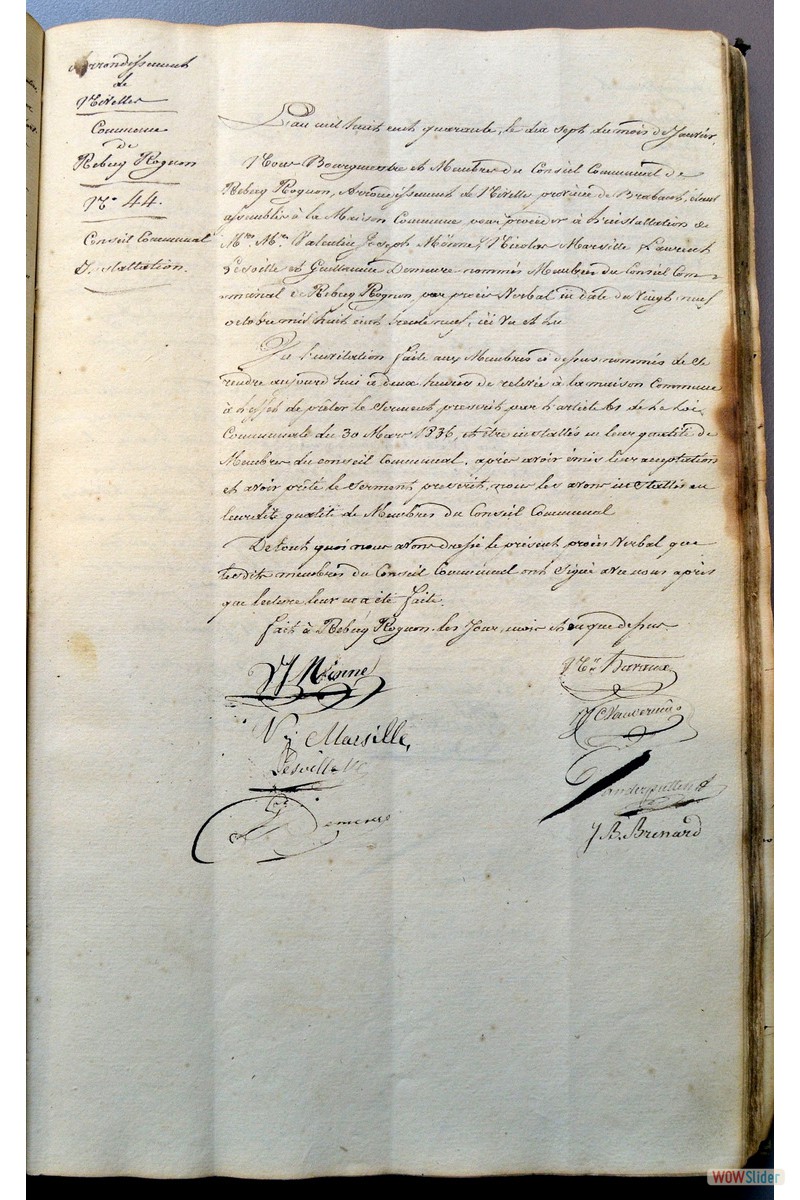 Arrondissement
de
Nivelles
Commune
de
Rebecq Rognon
N° 44.
Conseil Communal
Installation.
L'an mil huit cent quarante, le dix sept du mois de Janvier,
Nous Bourgmestre et Membres du Conseil Communal de
Rebecq Rognon, Arrondissement de Nivelles province de Brabant, étant
assemblés à la Maison Commune pour procéder à l'installation de
M.rs M.rs Valentin Joseph Mönne, Nicolas Marsille Laurent
Lesville et Guillaume Demeure nommés Membres du Conseil Com-
munal de Rebecq Rognon, par procès Verbal en date du Vingt neuf
octobre mil huit cent trente neuf, ici Vu et Lu
Vu l'invitation faite aux Membres ci dessus nommés de se
rendre aujourd'hui à deux heures de relevée à la maison Commune
à l'effet de prêter le Serment prescrit par l'article 61 de la Loi
Communale du 30 Mars 1836, et être installés en leur qualité de
Membres du conseil Communal, après avoir émis leur acceptation
et avoir prêté le Serment prescrit, nous les avons installés en
leur dite qualité de Membres du Conseil Communal
De tout quoi nous avons dressé le présent procès Verbal que
lesdits membres du Conseil Communal ont Signé avec nous après
que lecture leur en a été faite.
Fait à Rebecq Rognon les Jour, mois et an que dessus.
VJ Mönne
N. Marsille,
Lesville
Demeure
J B. Brenard
WOWSlider